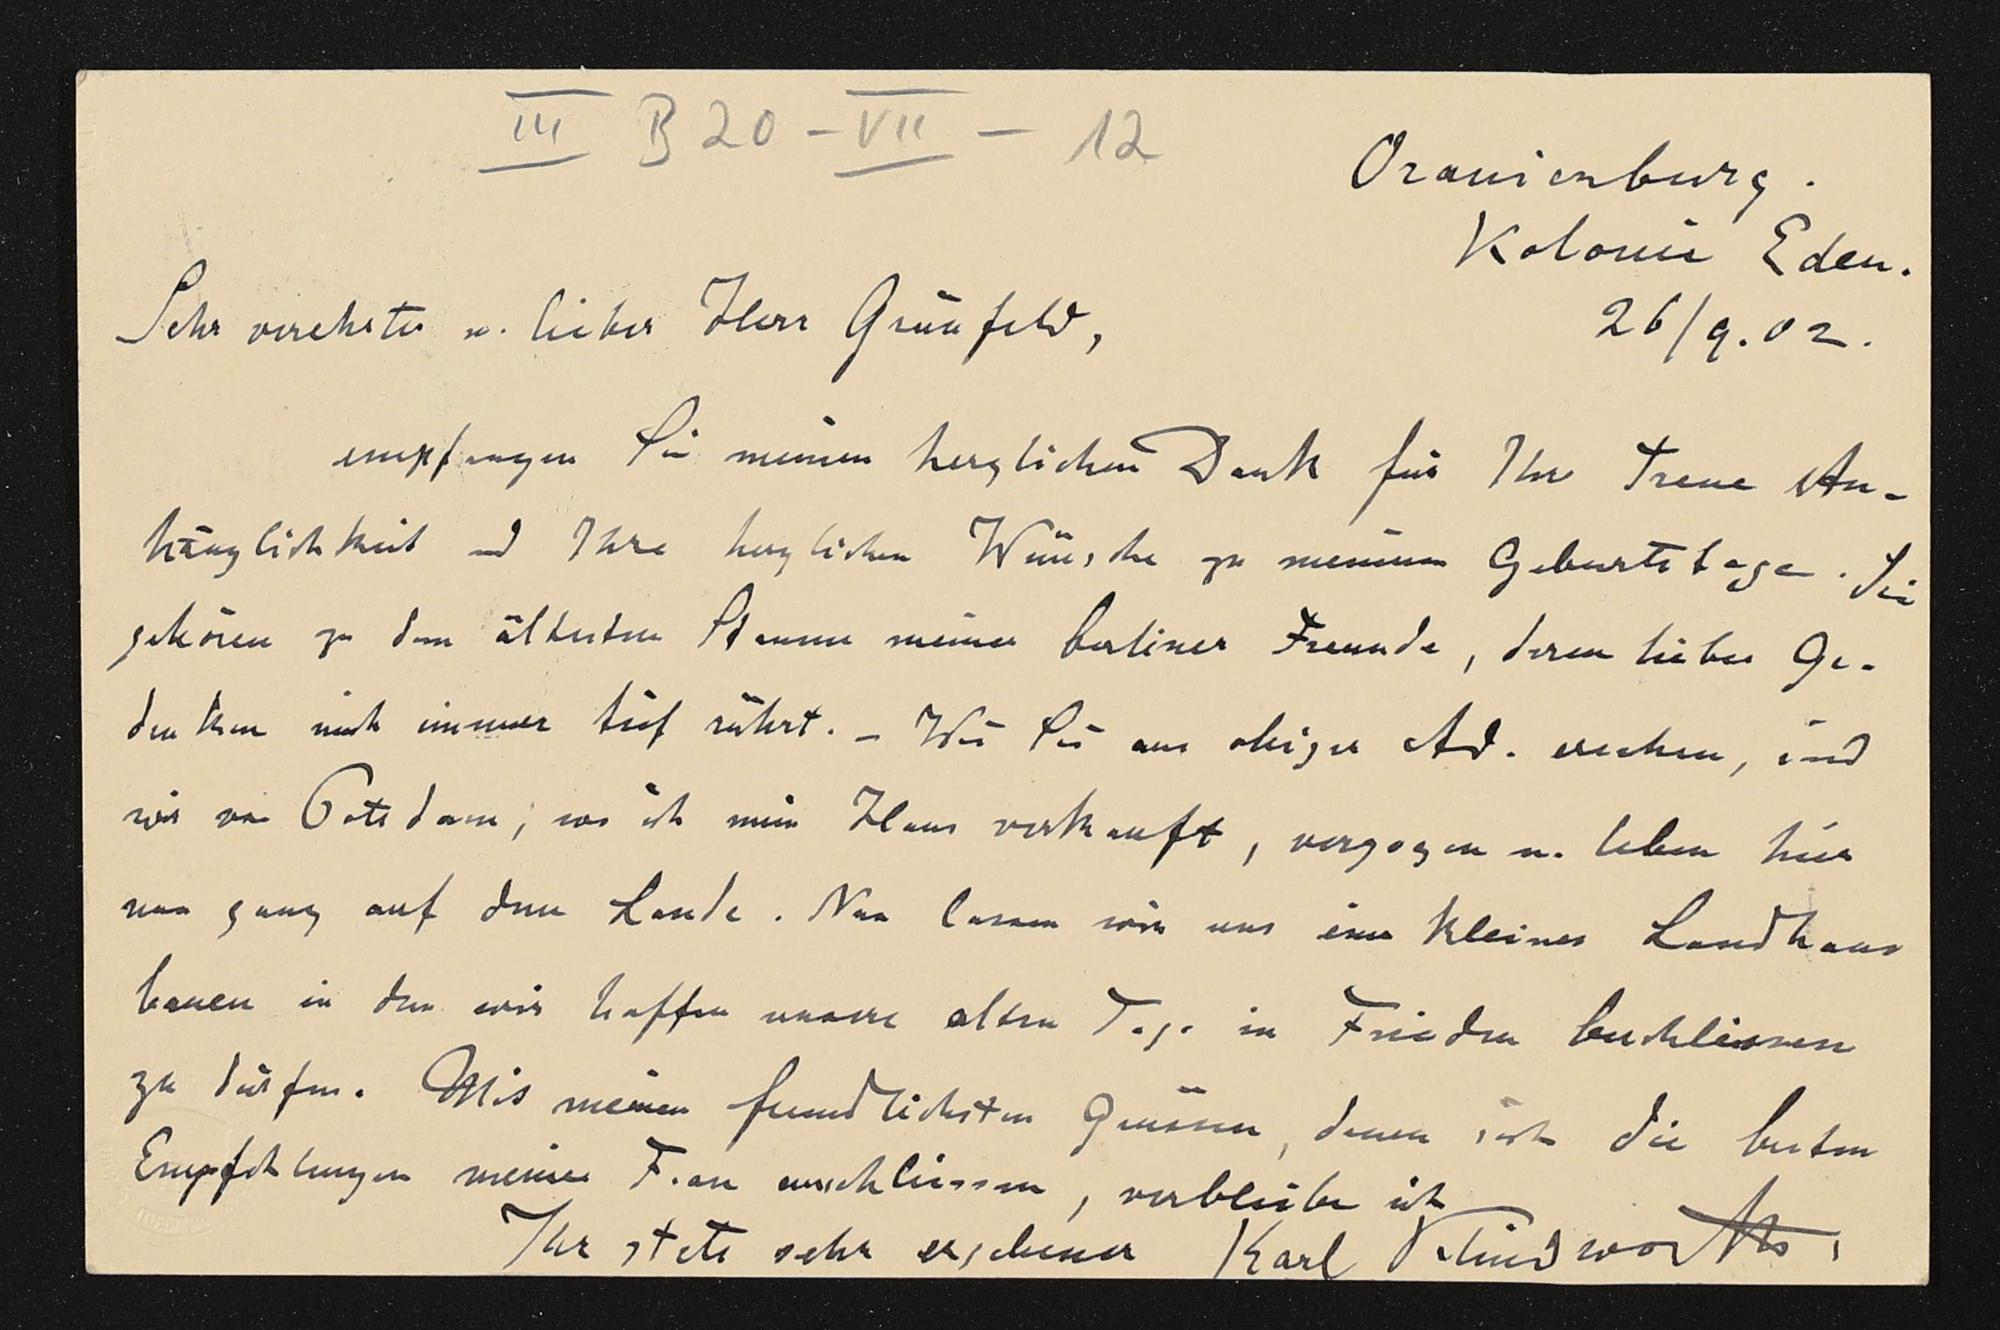 III B 20 - VII - 12
Oranienburg.
Kolonie Eden.
26/9.02.
Sehr verehrter u. lieber Herr Grünfeld,
empfangen Sie meinen herzlichen Dank für Ihre treue An-
hänglichkeit und Ihre herzlichen Wünsche zu meinem Geburtstage. Sie
gehören zu dem ältesten Stamm meiner berliner Freunde, deren liebes Ge-
denken mich immer tief rührt. - Wie Sie aus obiger Ad. ersehen, sind
wir von Potsdam, wo ich mein Haus verkauft, verzogen u. leben hier
nun ganz auf dem Lande. Nun lassen wir uns ein kleines Landhaus
bauen in dem wir hoffen unsere alten Tage in Frieden beschliessen
zu dürfen. Mit meinen freundlichsten Grüssen, denen sich die besten
Empfehlungen meiner Frau anschliessen, verbleibe ich
Ihr stets sehr ergebener Karl Klindworth.